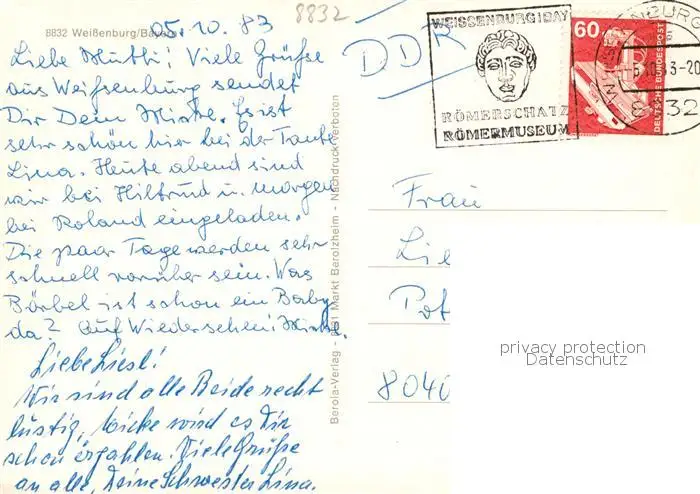 8832 Weißenburg/Bayern
05.10.83
8832
Liebe Mutti! Viele Grüße
aus Weißenburg sendet
Dir Dein Micke. Es ist
sehr schön hier bei der Tante
Lina. Heute abend sind
wir bei Hiltrud u. morgen
bei Roland eingeladen.
Die paar Tage werden sehr
schnell vorüber sein. Was
Bärbel ist schon ein Baby
da? Auf Wiedersehen! Micke.
Liebe Liesl!
Wir sind alle Beide recht
lustig, Micke wird es Dir
schon erzählen. Viele Grüße
an alle, Deine Schwester Lina.
Berola-Verlag - 8831 Markt Berolzheim - Nachdruck verboten
DDR
WEISSENBURG I BAY
RÖMERSCHATZ
RÖMERMUSEUM
60
DEUTSCHE BUNDESPOST
Frau
Lie
Pot
8040
privacy protection
Datenschutz